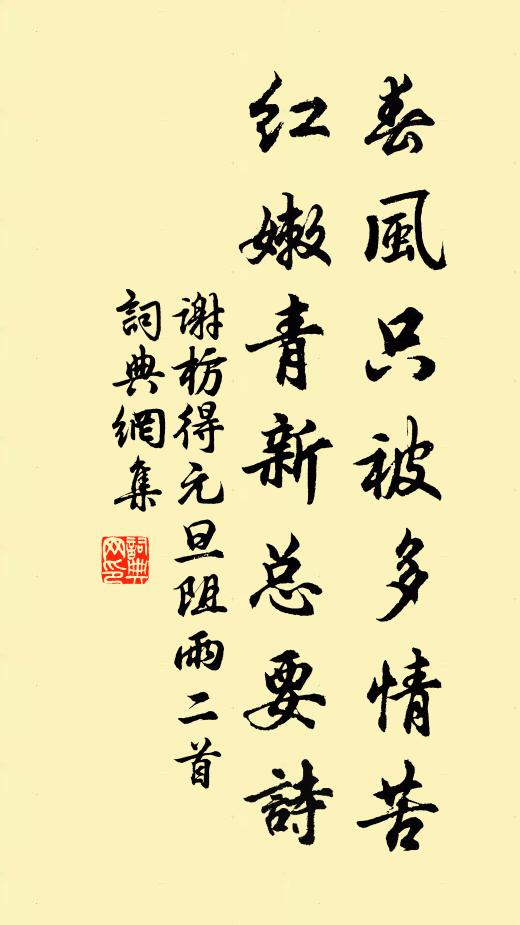 春風只被多情苦
紅嫩青新总要詩
谢枋得元旦阻雨二首
詞典網集
詞典网印